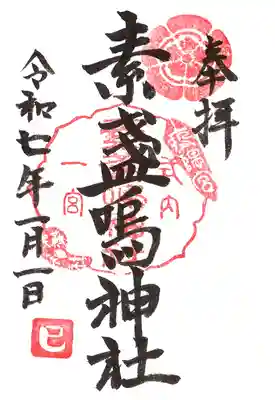 奉拝
素盞嗚神社
令和七年一月一日
式内
一宮
巳